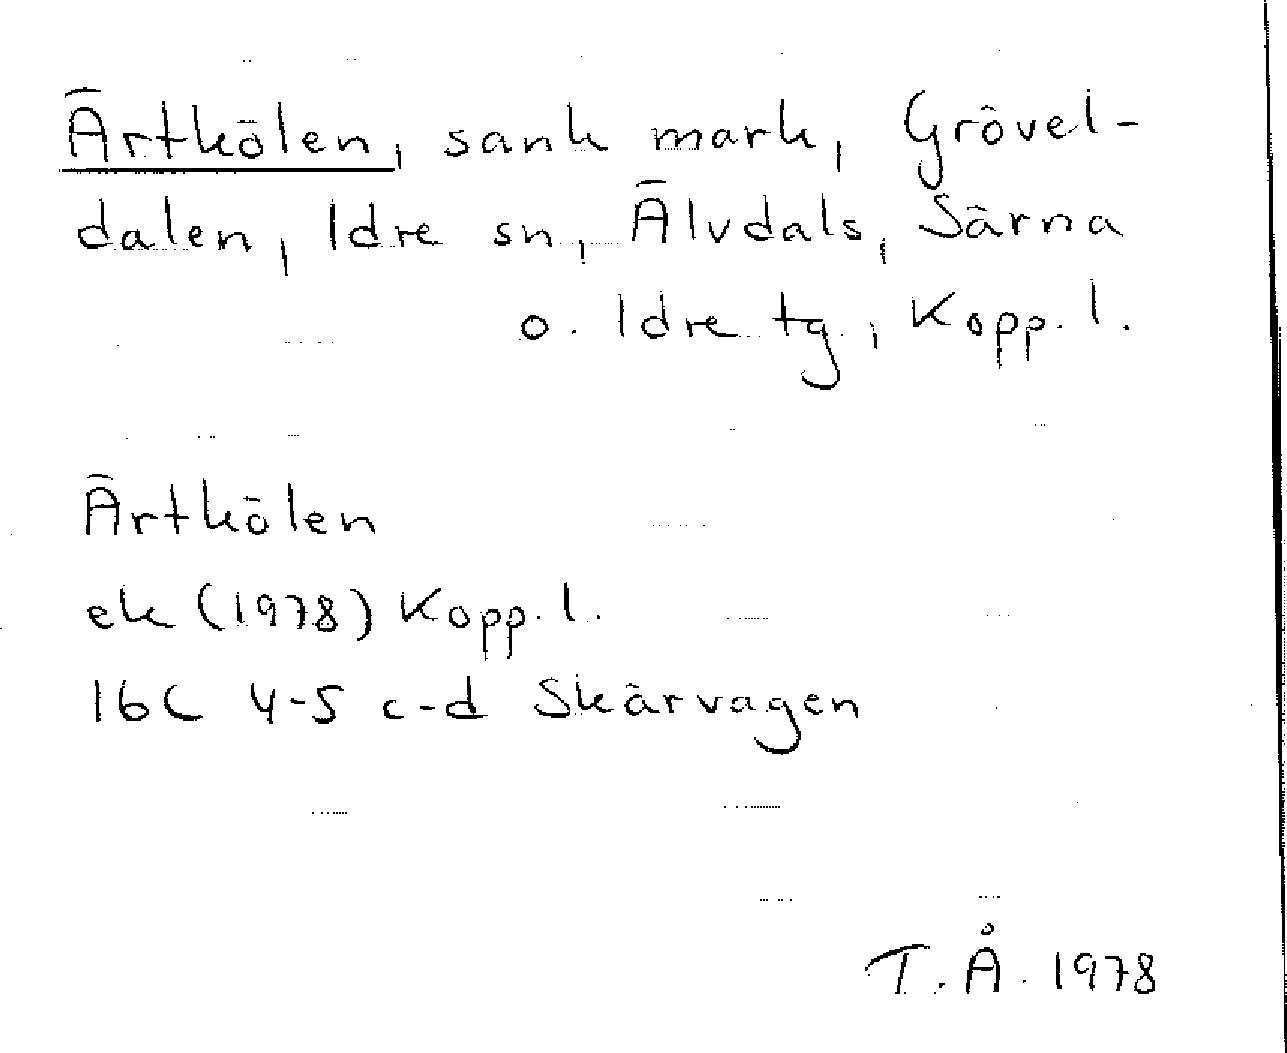 Ärtkölen, sank mark, Grövel-
dalen, Idre sn, Älvdals, Särna
o. Idre tg., Kopp. l.
Ärtkölen
ek (1978) Kopp. l.
16C 4-5 c-d Skärvagen
T. Å. 1978